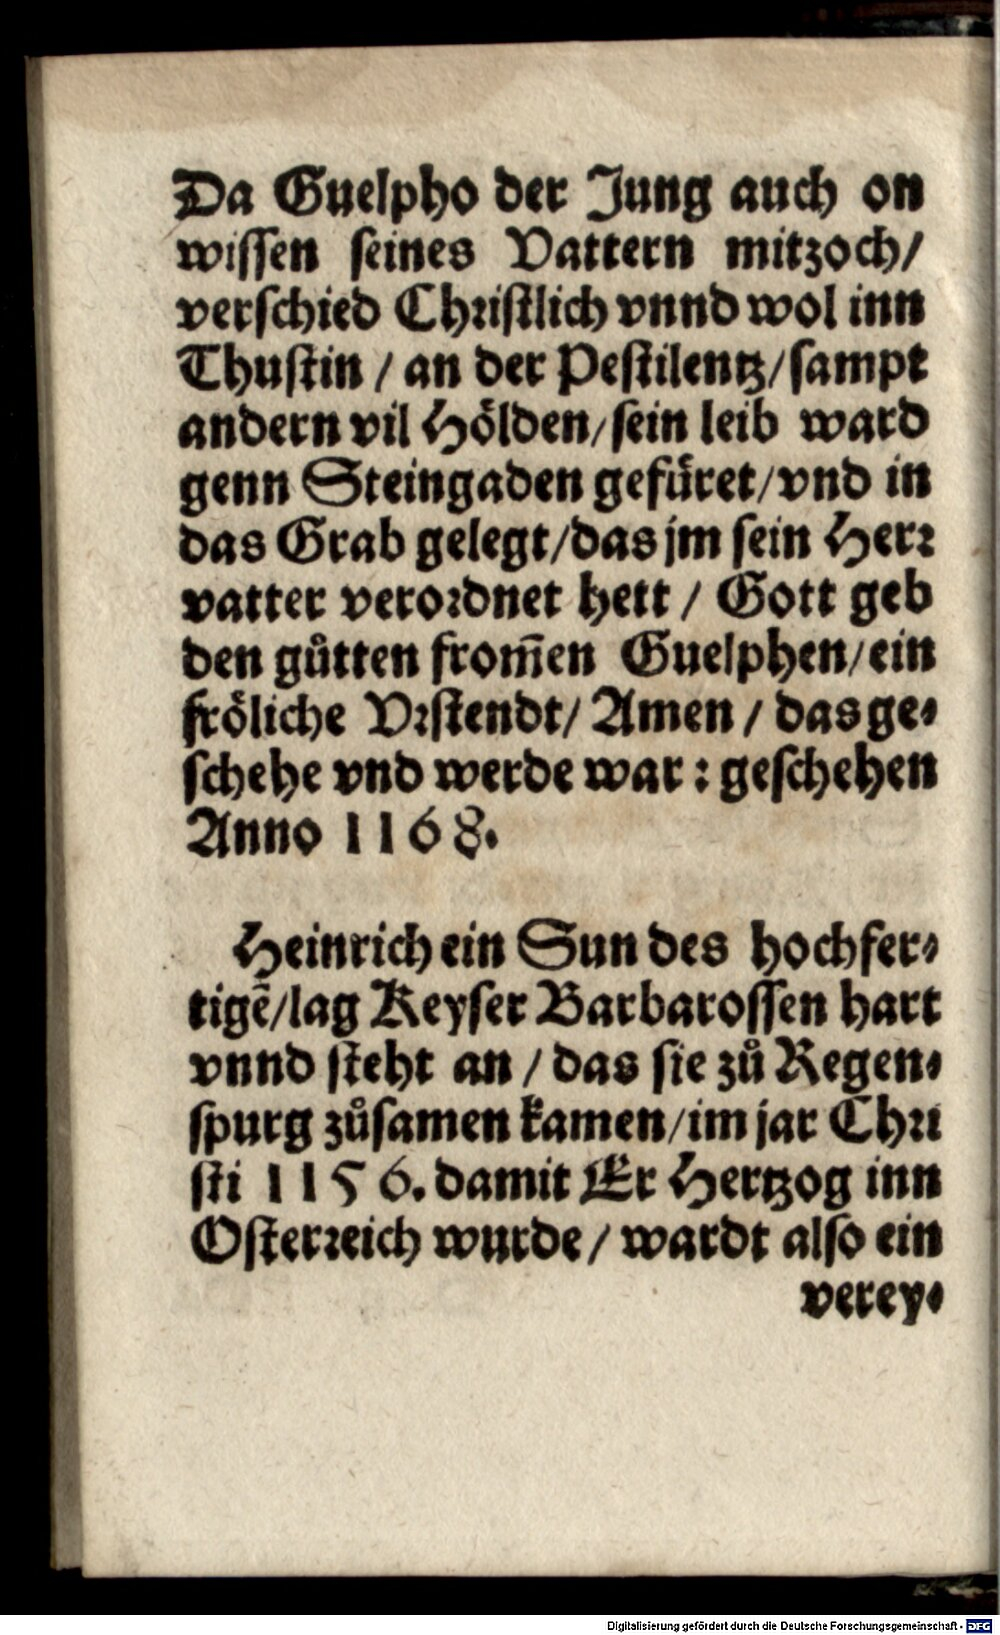 Da Guelpho der Jung auch on
wiſſen ſeines Vattern mitzoch/
verſchied Chꝛiſtlich vnnd wol inn
Thuſtin / an der Peſtilentz/ſampt
andern vil Hoͤlden/ſein leib ward
genn Steingaden gefuͤret/vnd in
das Grab gelegt/das jm ſein Herꝛ
vatter veroꝛdnet hett / Gott geb
den guͦtten from̃en Guelphen/ein
froͤliche Vꝛſtendt/ Amen / das ge⸗
ſchehe vnd werde war : geſchehen
Anno 1168.
Heinrich ein Sun des hochfer⸗
tigẽ/lag Keyſer Barbaroſſen hart
vnnd ſteht an / das ſie zuͦ Regen⸗
ſpurg zuͦſamen kamen/im jar Chꝛi
ſti 1156. damit Er Hertzog inn
Oſterꝛeich wurde / wardt alſo ein
verey⸗
Digitalisierung gefördert durch die Deutsche Forschungsgemeinschaft - DFG